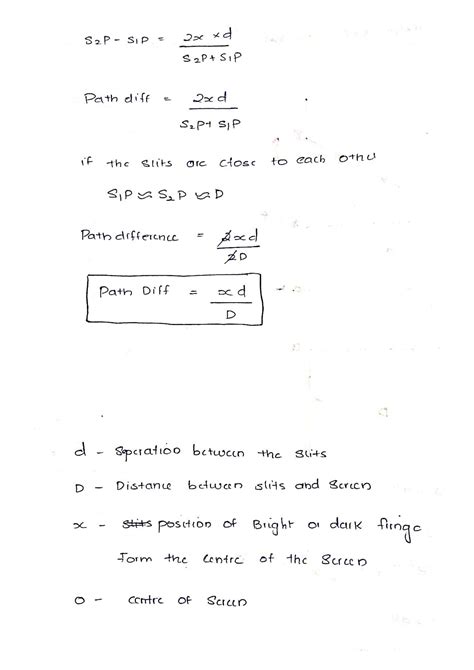 S2P - S1P = 2x × d / S2P + S1P
Path diff = 2xd / S2P + S1P
if the slits are close to each other
S1P ≈ S2P ≈ D
Path difference = 2xd / 2D
Path Diff = xd / D
d - Seperation between the slits
D - Distance between slits and Screen
x - slits position of Bright or dark fringe
form the centre of the Screen
O - centre of Screen